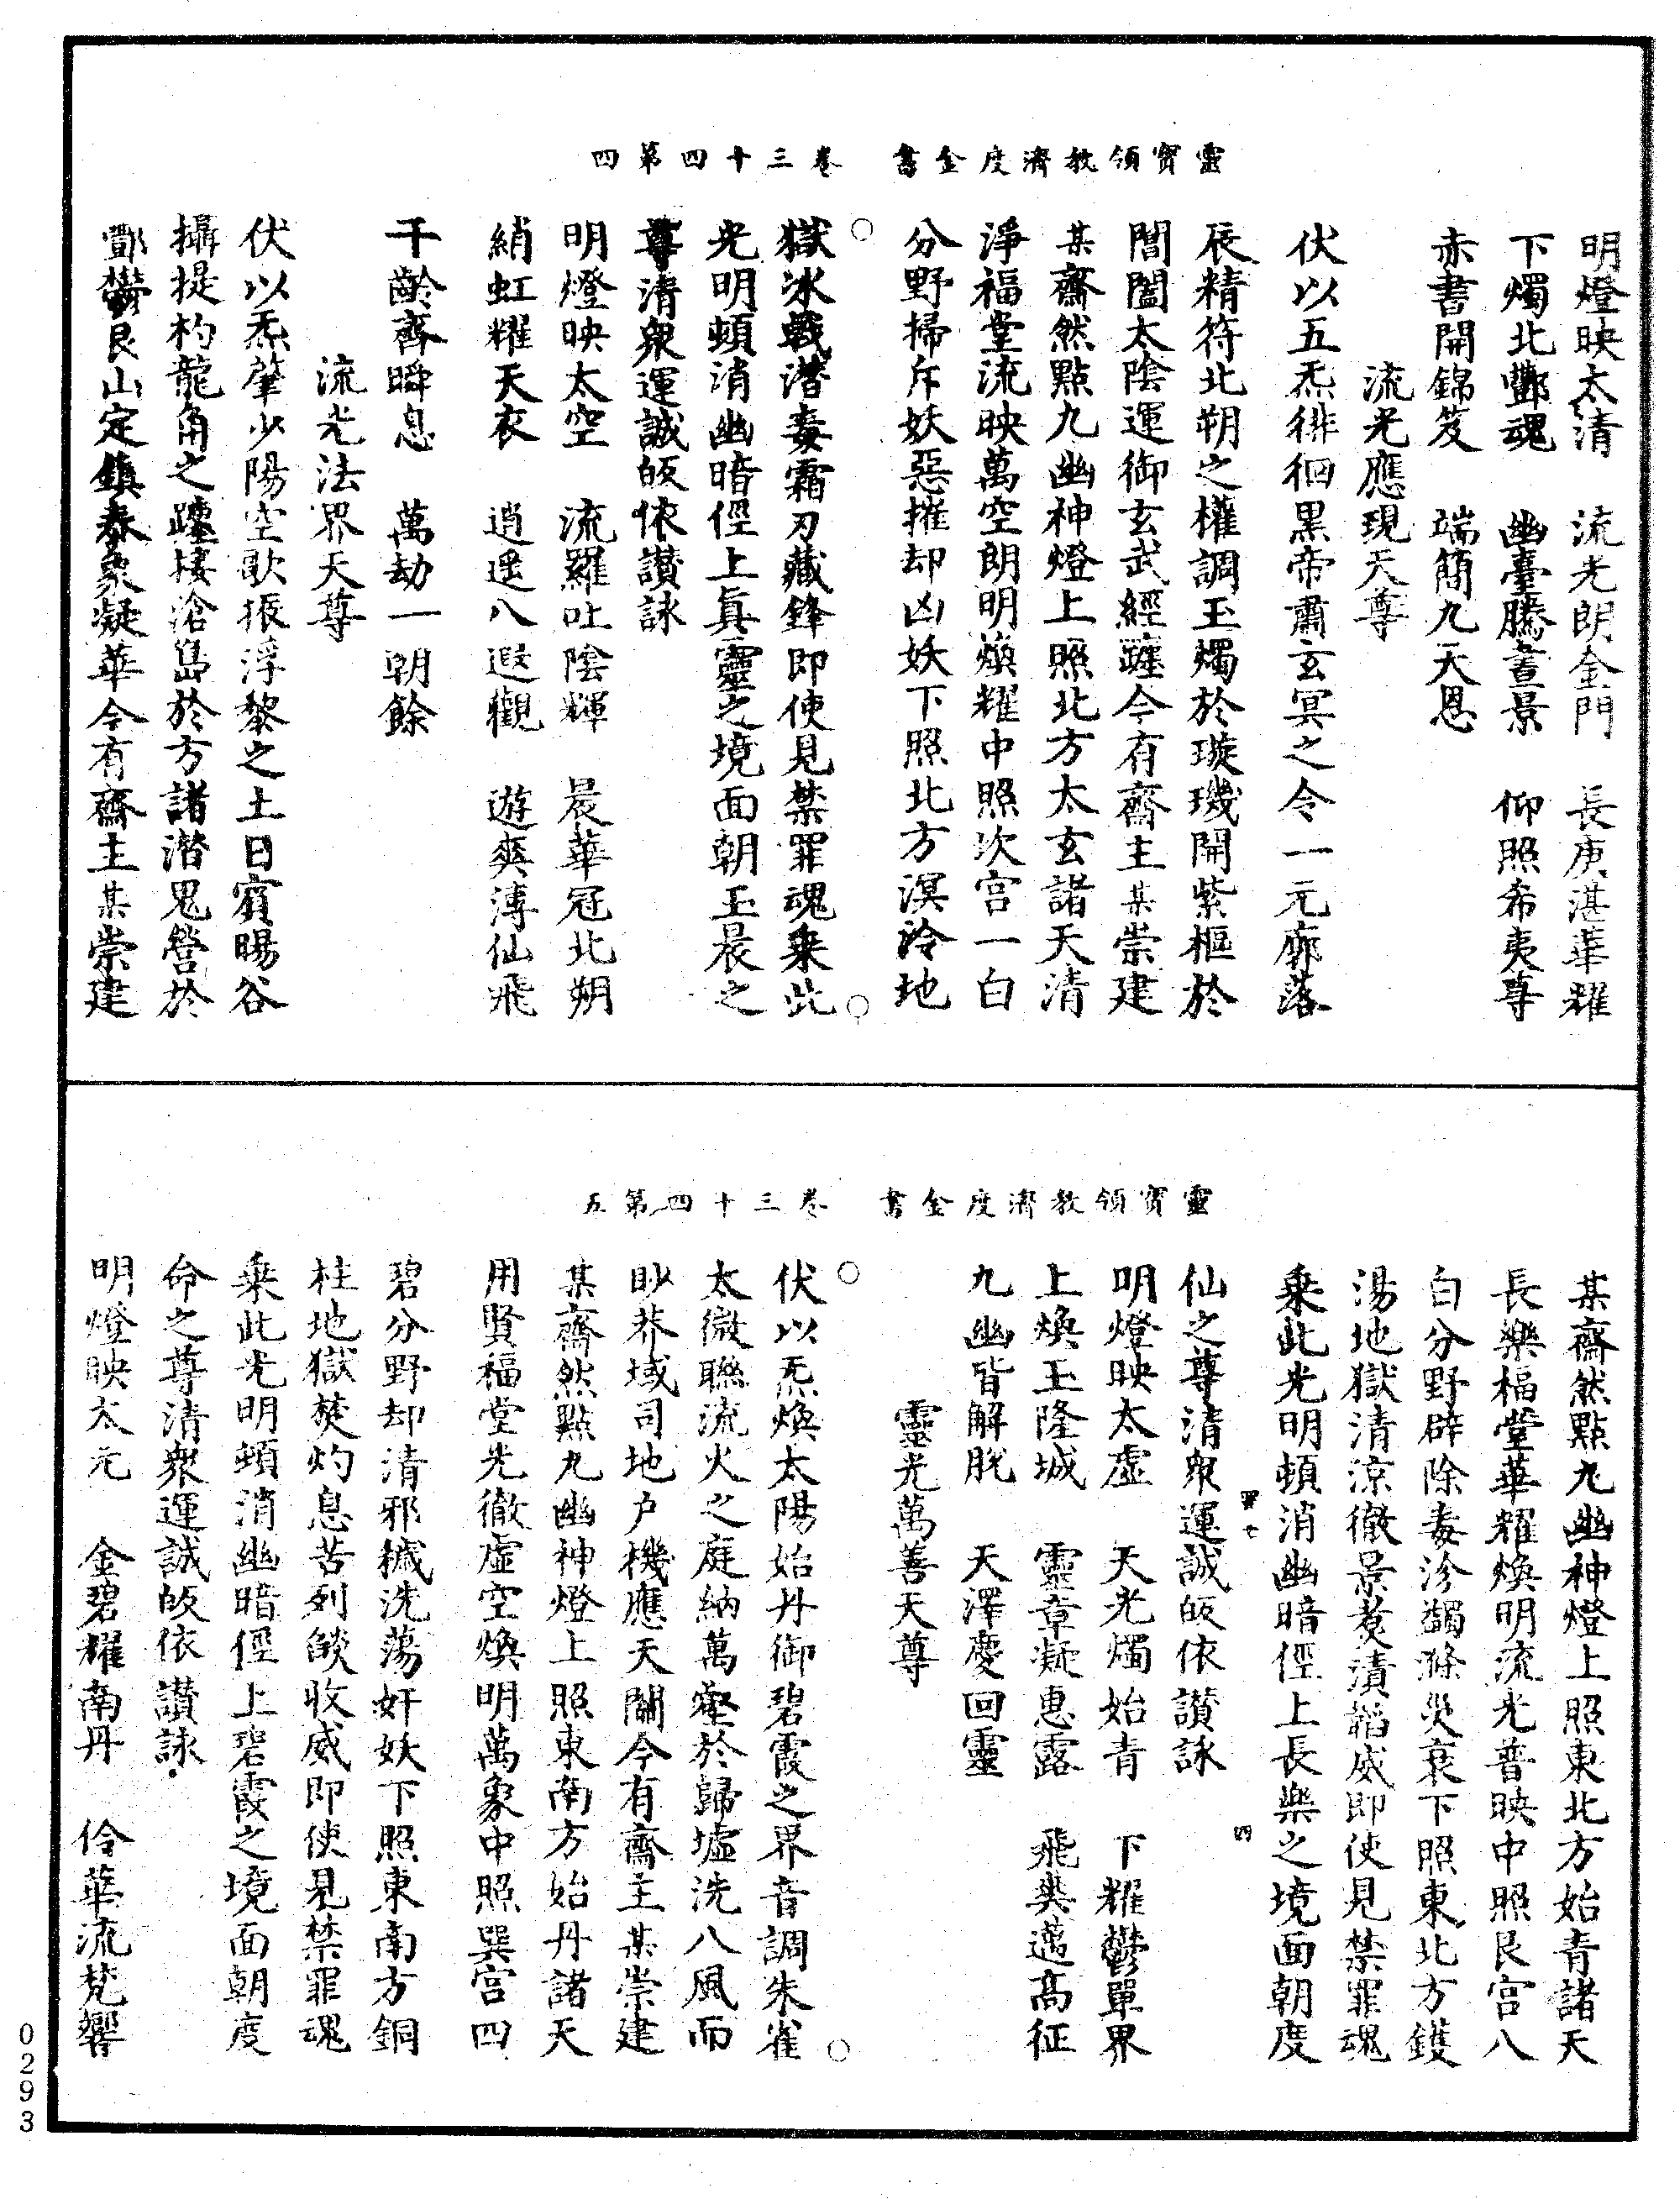 靈寶領教濟度金書　卷三十四第四
明燈映太清　流光朗金門　長庚湛華耀
下燭北酆魂　幽臺騰晝景　仰照希夷尊
赤書開錦笈　端簡九天恩
流光應現天尊
伏以五炁徘徊黑帝肅玄冥之令一元廓落
辰精符北朔之權調玉燭於璇璣開紫樞於
閶闔太陰運御玄武經躔今有齋主某崇建
某齋然點九幽神燈上照北方太玄諸天清
淨福堂流映萬空朗明煥耀中照坎宮一白
分野掃斥妖惡摧却凶妖下照北方溟泠地
獄冰戟潛毒霜刃藏鋒即使見禁罪魂乗此
光明頓消幽暗徑上真靈之境面朝玉晨之
尊清衆運誠皈依讚詠
明燈映太空　流羅吐陰輝　晨華冠北朔
絹虹耀天衣　逍遥八遐觀　遊爽溥仙飛
千齡齊瞬息　萬劫一朝餘
流光法界天尊
伏以炁肇少陽空歌振浮黎之土日賓暘谷
攝提杓龍角之躔棲滄島於方諸潛鬼營於
酆欝艮山定鎮春象凝華今有齋主某崇建
靈寶領教濟度金書　卷三十四第五
某齋然點九幽神燈上照東北方始青諸天
長樂福堂華耀煥明流光普映中照艮宮八
白分野辟除毒沴蠲滌災衰下照東北方鑊
湯地獄清涼徹景煑漬韜威即使見禁罪魂
乗此光明頓消幽暗徑上長樂之境面朝度
仙之尊清衆運誠皈依讚詠
明燈映太虛　天光燭始青　下耀鬱單界
上煥玉隆城　靈章凝惠露　飛爽邁高征
九幽皆解脫　天澤慶回靈
靈光萬善天尊
伏以炁煥太陽始丹御碧霞之界音調朱雀
太微聯流火之庭納萬壑於歸墟洗八風而
眇莽域司地户機應天關今有齋主某崇建
某齋然點九幽神燈上照東南方始丹諸天
用賢福堂光徹虛空煥明萬象中照巽宮四
碧分野却清邪穢洗蕩奸妖下照東南方銅
柱地獄焚灼息苦列燄收威即使見禁罪魂
乗此光明頓消幽暗徑上碧霞之境面朝度
命之尊清衆運誠皈依讚詠
明燈映太元　金碧耀南丹　伶華流梵響
0293